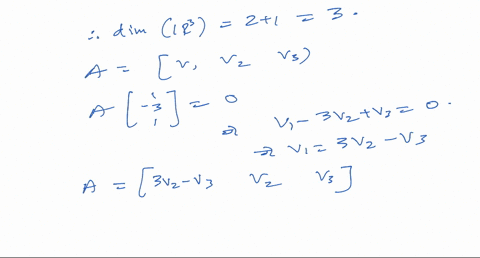 ∴ dim (ℝ³) = 2+1 = 3.
A = [v₁ v₂ v₃)
A [1 -3 1] = 0
⇒ v₁ - 3v₂ + v₃ = 0.
⇒ v₁ = 3v₂ - v₃
A = [3v₂-v₃ v₂ v₃]